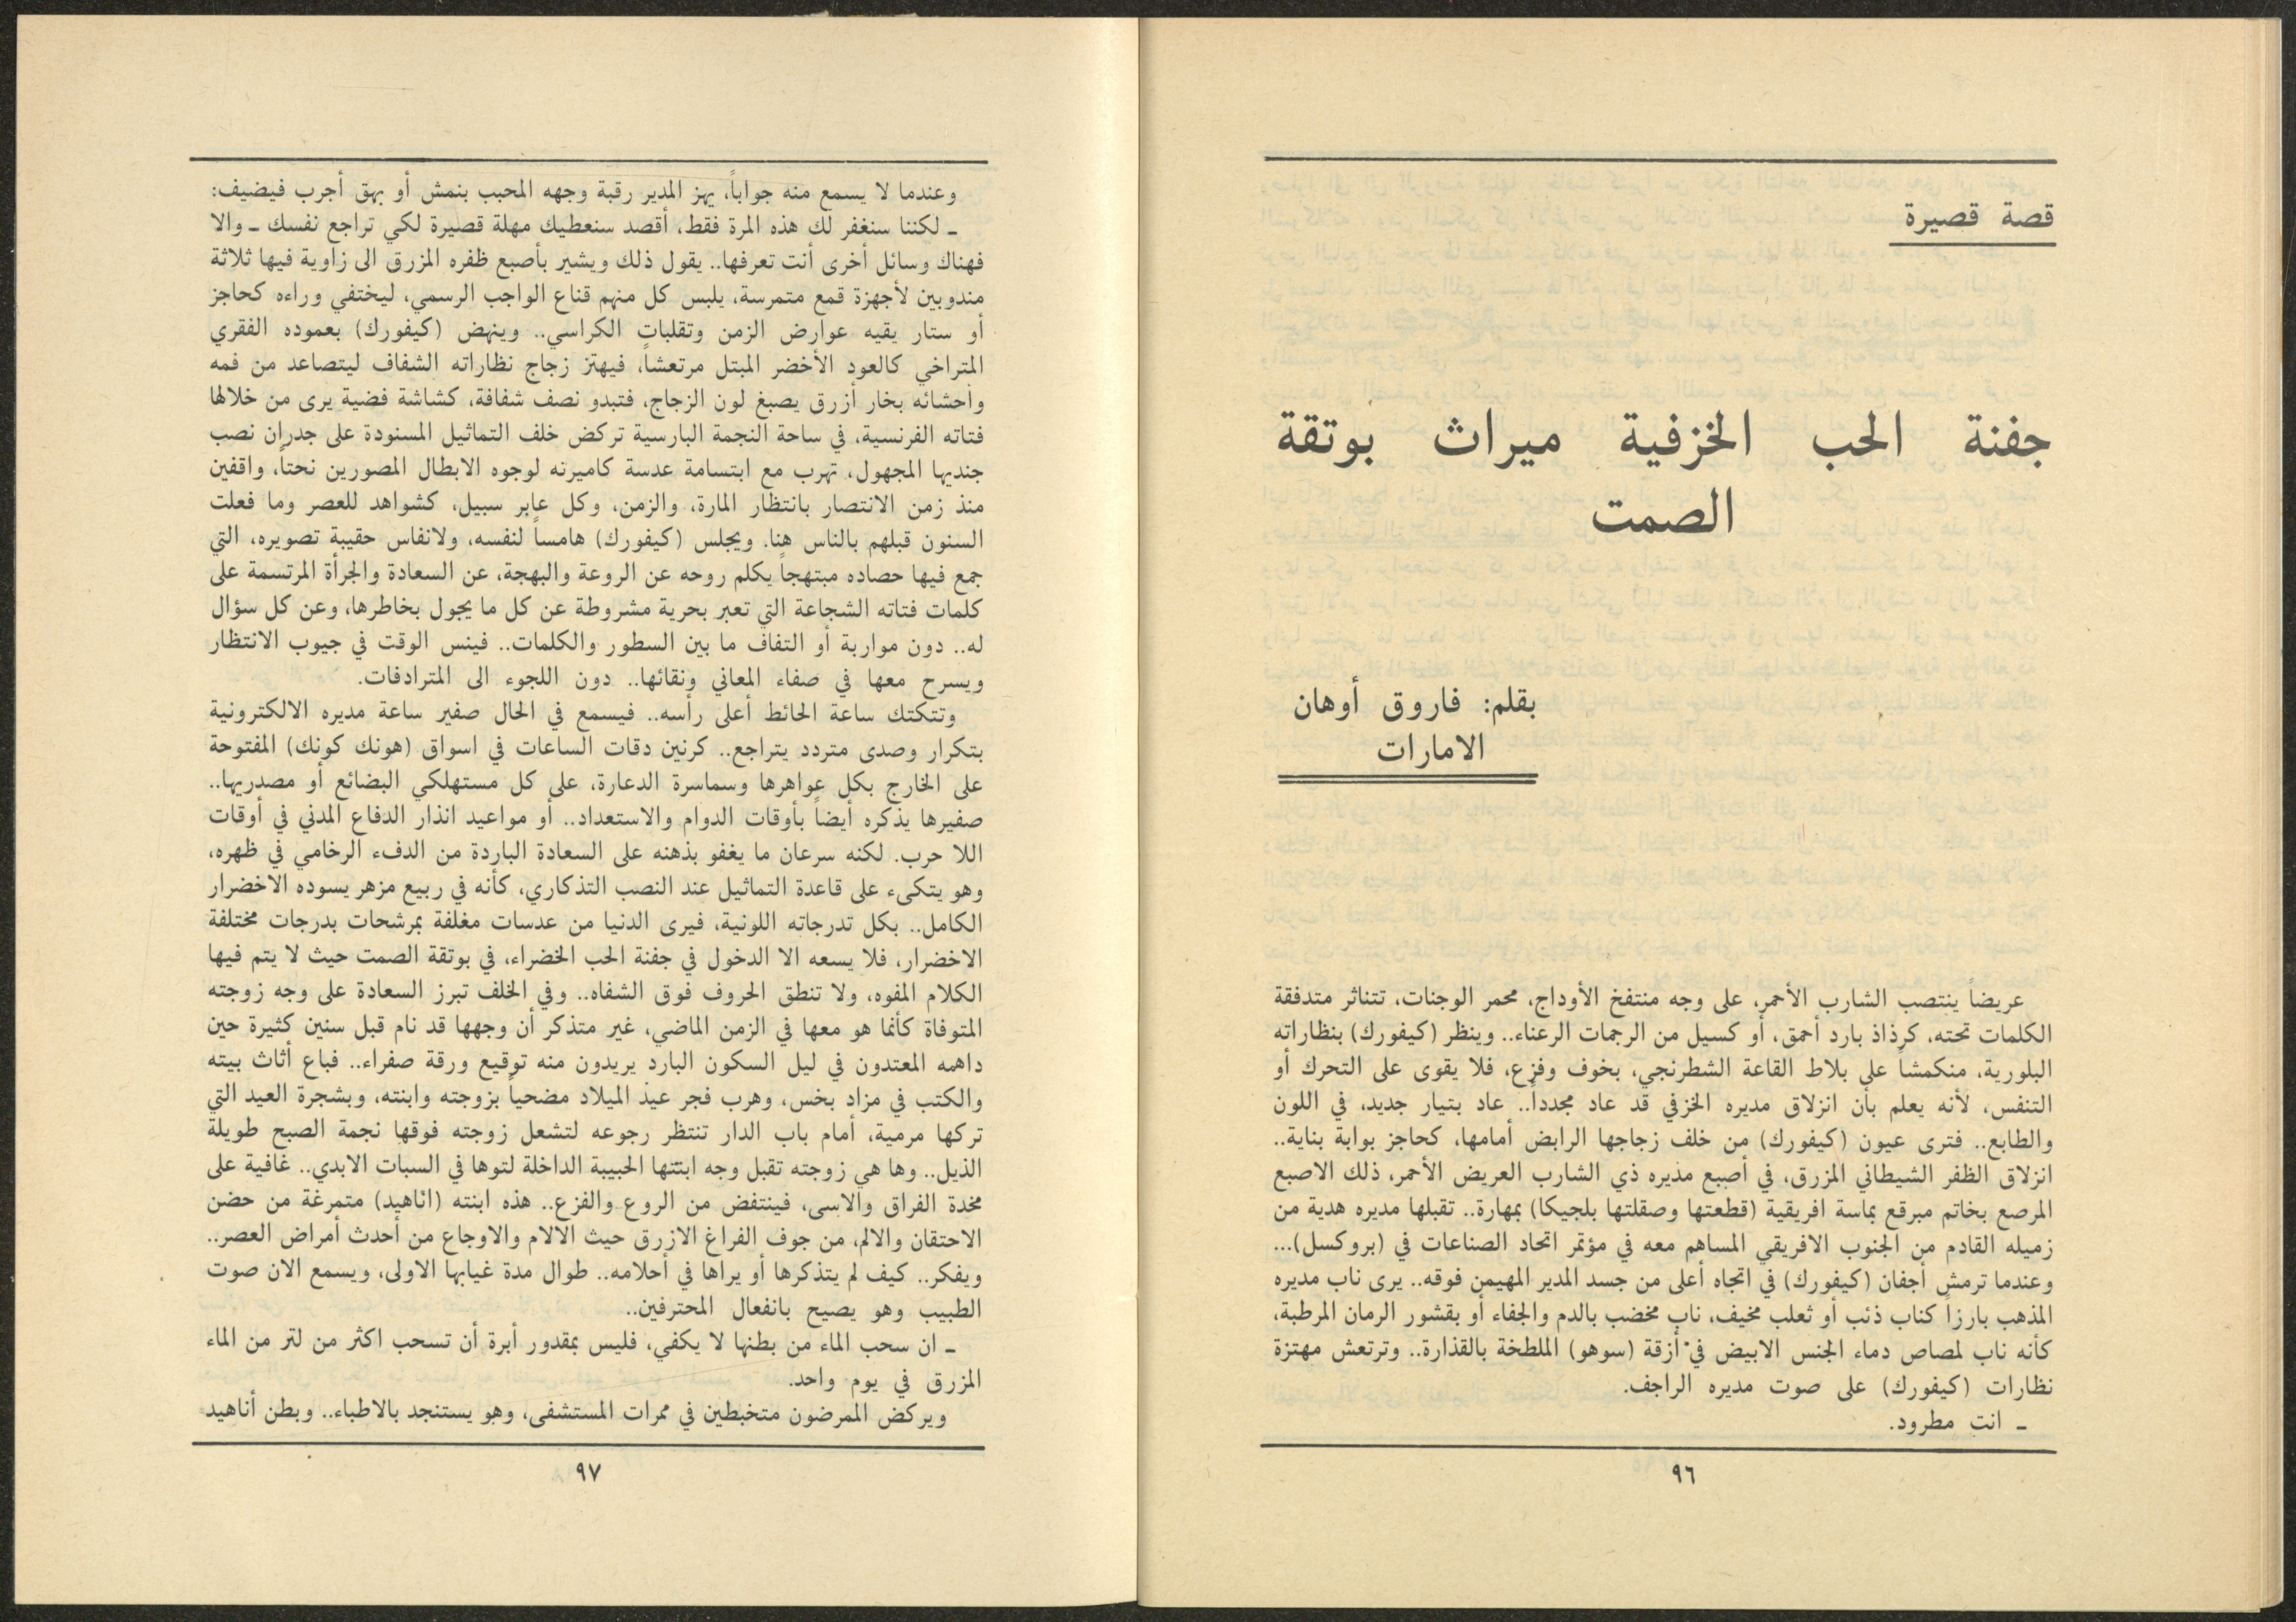 قصة قصيرة
جفنة الحب الخزفية ميراث بوتقة
الصمت
بقلم: فاروق أوهان
الامارات
عريضاً ينتصب الشارب الأحمر، على وجه منتفخ الأوداج، محمر الوجنات، تتناثر متدفقة
الكلمات تحته، كرذاذ بارد أحمق، أو كسيل من الرجمات الرعناء.. وينظر (كيفورك) بنظاراته
البلورية، منكمشاً على بلاط القاعة الشطرنجي، بخوف وفزع، فلا يقوى على التحرك أو
التنفس، لأنه يعلم بأن انزلاق مديره الخزفي قد عاد مجدداً.. عاد بتيار جديد، في اللون
والطابع.. فترى عيون (كيفورك) من خلف زجاجها الرابض أمامها، كحاجز بوابة بناية..
انزلاق الظفر الشيطاني المزرق، في أصبع مديره ذي الشارب العريض الأحمر، ذلك الاصبع
المرصع بخاتم مبرقع بماسة افريقية (قطعتها وصقلتها بلجيكا) بمهارة.. تقبلها مديره هدية من
زميله القادم من الجنوب الافريقي المساهم معه في مؤتمر اتحاد الصناعات في (بروكسل)...
وعندما ترمش أجفان (كيفورك) في اتجاه أعلى من جسد المدير المهيمن فوقه.. يرى ناب مديره
المذهب بارزاً كناب ذئب أو ثعلب مخيف، ناب مخضب بالدم والجفاء أو بقشور الرمان المرطبة،
كأنه ناب لمصاص دماء الجنس الابيض في أزقة (سوهو) الملطخة بالقذارة.. وترتعش مهتزة
نظارات (كيفورك) على صوت مديره الراجف.
ـ انت مطرود.
٩٦
وعندما لا يسمع منه جواباً، يهز المدير رقبة وجهه المحبب بنمش أو بهق أجرب فيضيف:
ـ لكننا سنغفر لك هذه المرة فقط، أقصد سنعطيك مهلة قصيرة لكي تراجع نفسك ـ والا
فهناك وسائل أخرى أنت تعرفها.. يقول ذلك ويشير بأصبع ظفره المزرق الى زاوية فيها ثلاثة
مندوبين لأجهزة قمع متمرسة، يلبس كل منهم قناع الواجب الرسمي، ليختفي وراءه كحاجز
أو ستار يقيه عوارض الزمن وتقلبات الكراسي.. وينهض (كيفورك) بعموده الفقري
المتراخي كالعود الأخضر المبتل مرتعشاً، فيهتز زجاج نظاراته الشفاف ليتصاعد من فمه
واحشائه بخار أزرق يصبغ لون الزجاج، فتبدو نصف شفافة، كشاشة فضية يرى من خلالها
فتاته الفرنسية، في ساحة النجمة البارسية تركض خلف التماثيل المسنودة على جدران نصب
جنديها المجهول، تهرب مع ابتسامة عدسة كاميرته لوجوه الابطال المصورين نحتاً، واقفين
منذ زمن الانتصار بانتظار المارة، والزمن، وكل عابر سبيل، كشواهد للعصر وما فعلت
السنون قبلهم بالناس هنا. ويجلس (كيفورك) هامساً لنفسه، ولانفاس حقيبة تصويره، التي
جمع فيها حصاده مبتهجاً يكلم روحه عن الروعة والبهجة، عن السعادة والجرأة المرتسمة على
كلمات فتاته الشجاعة التي تعبر بحرية مشروطة عن كل ما يجول بخاطرها، وعن كل سؤال
له.. دون مواربة أو التفاف ما بين السطور والكلمات.. فينس الوقت في جيوب الانتظار
ويسرح معها في صفاء المعاني ونقائها.. دون اللجوء الى المترادفات.
وتتكتك ساعة الحائط أعلى رأسه.. فيسمع في الحال صفير ساعة مديره الالكترونية
بتكرار وصدى متردد يتراجع.. كرنين دقات الساعات في اسواق (هونك كونك) المفتوحة
على الخارج بكل عواهرها وسماسرة الدعارة، على كل مستهلكي البضائع أو مصدريها..
صفيرها يذكره أيضاً بأوقات الدوام والاستعداد.. أو مواعيد انذار الدفاع المدني في أوقات
اللا حرب. لكنه سرعان ما يغفو بذهنه على السعادة الباردة من الدفء الرخامي في ظهره،
وهو يتكىء على قاعدة التماثيل عند النصب التذكاري، كأنه في ربيع مزهر يسوده الاخضرار
الكامل.. بكل تدرجاته اللونية، فيرى الدنيا من عدسات مغلفة بمرشحات بدرجات مختلفة
الاخضرار، فلا يسعه الا الدخول في جفنة الحب الخضراء، في بوتقة الصمت حيث لا يتم فيها
الكلام المفوه، ولا تنطق الحروف فوق الشفاه.. وفي الخلف تبرز السعادة على وجه زوجته
المتوفاة كأنما هو معها في الزمن الماضي، غير متذكر أن وجهها قد نام قبل سنين كثيرة حين
داهمه المعتدون في ليل السكون البارد يريدون منه توقيع ورقة صفراء.. فباع أثاث بيته
والكتب في مزاد بخس، وهرب فجر عيد الميلاد مضحياً بزوجته وابنته، وبشجرة العيد التي
تركها مرمية، أمام باب الدار تنتظر رجوعه لتشعل زوجته فوقها نجمة الصبح طويلة
الذيل.. وها هي زوجته تقبل وجه ابنتها الحبيبة الداخلة لتوها في السبات الابدي.. غافية على
مخدة الفراق والاسى، فينتفض من الروع والفزع.. هذه ابنته (اناهيد) متمرغة من حضن
الاحتقان والالم، من جوف الفراغ الازرق حيث الالام والاوجاع من أحدث أمراض العصر..
ويفكر.. كيف لم يتذكرها أو يراها في أحلامه.. طوال مدة غيابها الاولى، ويسمع الان صوت
الطبيب وهو يصيح بانفعال المحترفين..
ـ ان سحب الماء من بطنها لا يكفي، فليس بمقدور أبرة أن تسحب اكثر من لتر من الماء
المزرق في يوم واحد.
ويركض الممرضون متخبطين في ممرات المستشفى، وهو يستنجد بالاطباء.. وبطن أناهيد
٩٧